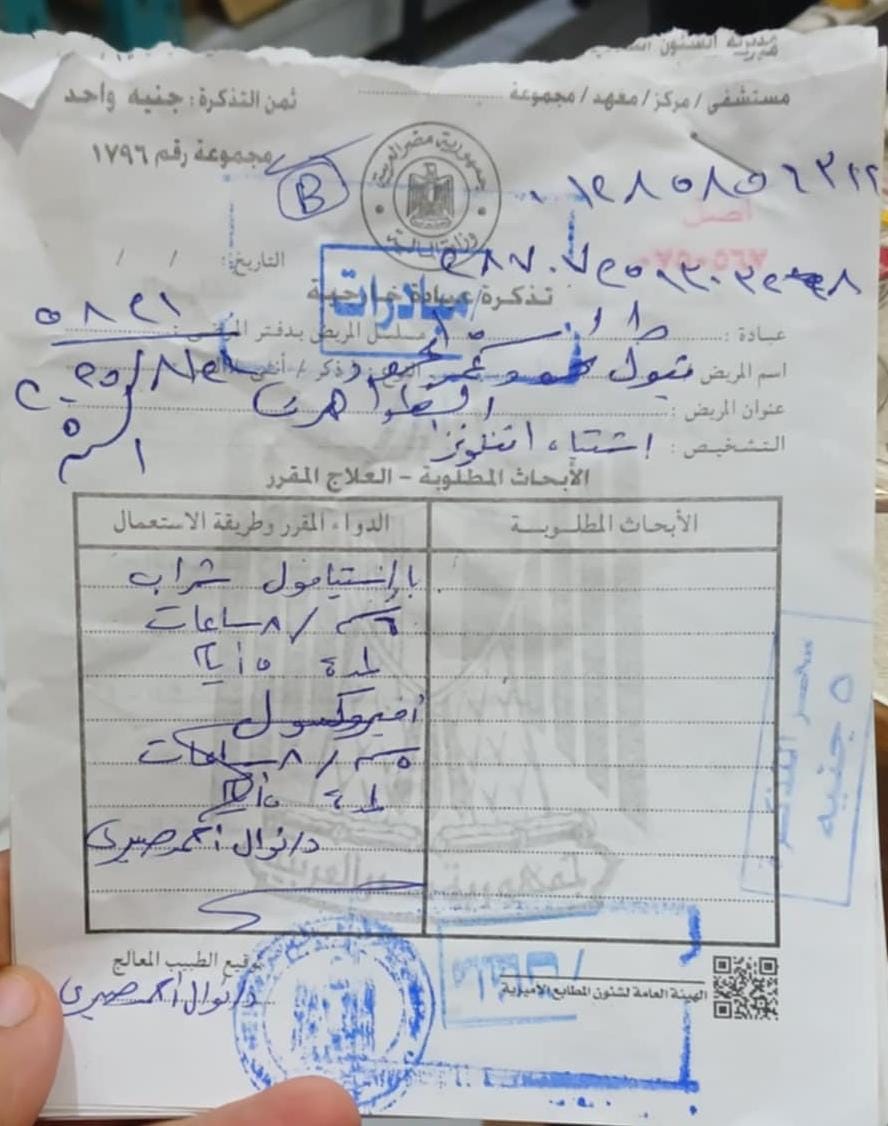 مديرية الشئون
مستشفى / مركز / معهد / مجموعة
ثمن التذكرة : جنيه واحد
مجموعة رقم ١٧٩٦
جمهورية مصر العربية
وزارة المالية
B
أصل
التاريخ : / /
تذكرة عيادة خارجية
مبادرات
عيادة :
مسلسل المريض بدفتر المرضى :
٥٨٢١
اسم المريض بتول محمود
عنوان المريض :
التشخيص : اشتباه انفلونزا
الأبحاث المطلوبة - العلاج المقرر
الأبحاث المطلوبة
الدواء المقرر وطريقة الاستعمال
باراستيامول شراب
٦سم / ٨ ساعات
لمدة ٥ أيام
أمبروكسول
٥سم / ٨ ساعات
لمدة ٥ أيام
د/ نوال أحمد صبرى
سعر التذكرة
٥ جنيه
توقيع الطبيب المعالج
د/ نوال أحمد صبرى
الهيئة العامة لشئون المطابع الأميرية